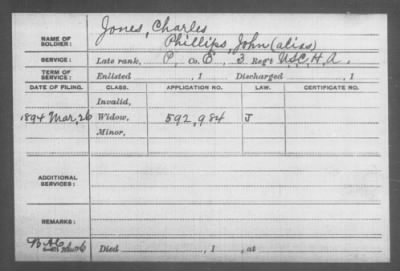 NAME OF SOLDIER: Jones, Charles
Phillips, John (alias)
SERVICE: Late rank, P, Co. E, 3 Reg't U.S.C.H.A.
TERM OF SERVICE: Enlisted , 1 Discharged , 1
DATE OF FILING. CLASS. APPLICATION NO. LAW. CERTIFICATE NO.
Invalid,
1894 Mar, 26 Widow, 592,984 J
Minor,
ADDITIONAL SERVICES:
REMARKS:
Died , 1 , at